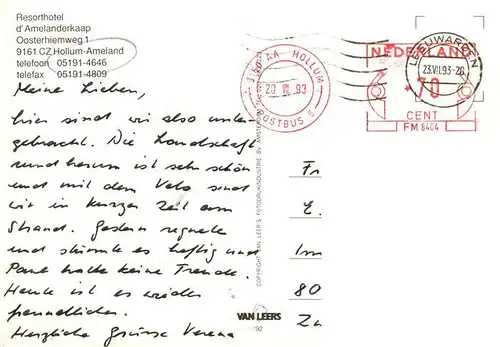 Resorthotel
d'Amelanderkaap
Oosterhiemweg 1
9161 CZ Hollum-Ameland
telefoon 05191-4646
telefax 05191-4809
Meine Lieben,
hier sind wir also unter-
gebracht. Die Landschaft
rund herum ist sehr schön
und mit dem Velo sind
wir in kurzer Zeit am
Strand. Gestern regnete
und stürmte es heftig und
Paul hatte keine Freude.
Heute ist es wieder
freundlicher.
Herzliche Grüsse Verena
COPYRIGHT VAN LEER'S FOTODRUKINDUSTRIE BV AMSTERDAM
VAN LEERS
92
AA HOLLUM
20 VII 93
POSTBUS 6
NEDERLAND
70
CENT
FM 6404
LEEUWARDEN
23.VII.93
Fr
E.
Im
80